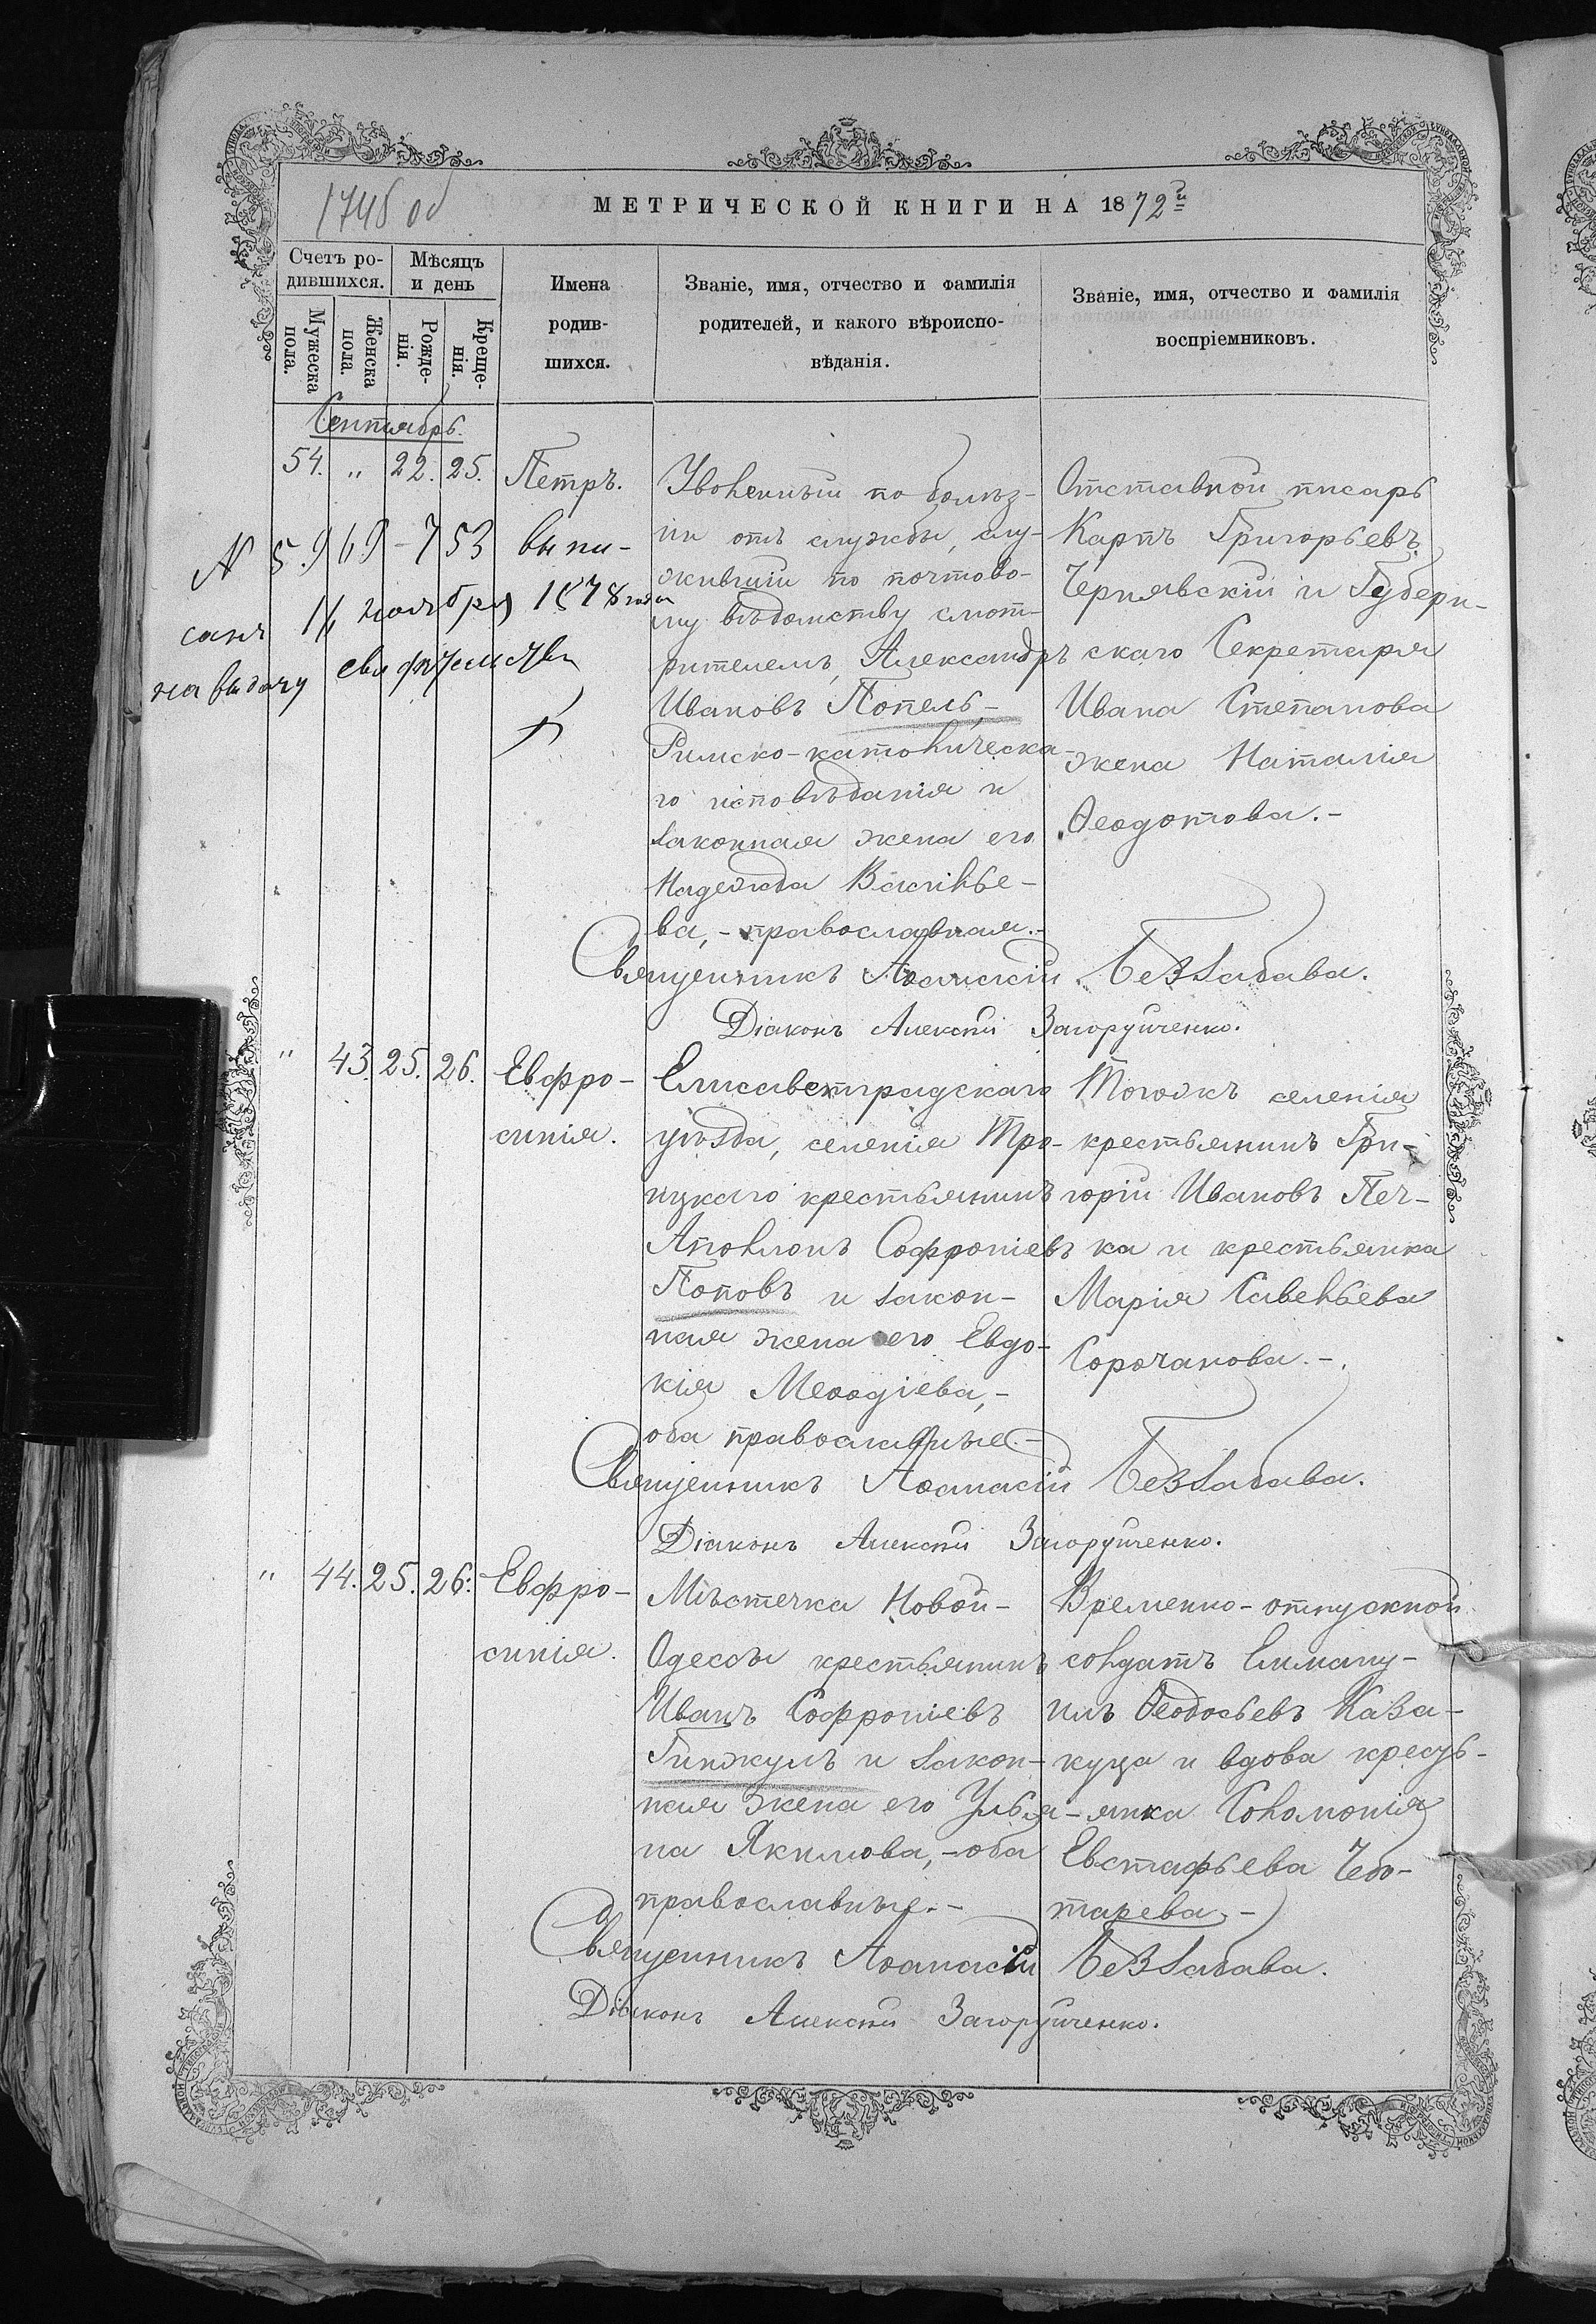 1745 об
МЕТРИЧЕСКОЙ КНИГИ НА 1872й
Счетъ ро-
дившихся.
Мѣсяцъ
и день
Мужеска
пола.
Женска
пола.
Рожде-
нія.
Креще-
нія.
Имена
родив-
шихся.
Званіе, имя, отчество и фамилія
родителей, и какого вѣроиспо-
вѣданія.
Званіе, имя, отчество и фамилія
воспріемниковъ.
Сентябрь.
54. „ 22. 25.
Петръ.
Уволенный по болѣз-
ни отъ службы, слу-
жившій по почтово-
му вѣдомству смот-
рителемъ, Александръ
Ивановъ Попель -
Римско-католическа-
го исповѣданія и
законная жена его
Надежда Василье-
ва, - православная. -
Отставной писарь
Карпъ Григорьевъ
Чернявскій и Губерн-
скаго Секретаря
Ивана Степанова
жена Наталія
Ѳеодотова. -
N 5.969 - 753 выпи-
санъ 11 ноября 1878 года
на выдачу свидѣтельства
Священникъ Аѳанасій Беззабава.
Діаконъ Алексій Загоруйченко.
„ 43. 25. 26.
Евфро-
синія.
Елисаветградскаго
уѣзда, селенія Тро-
ицкаго крестьянинъ
Аполлонъ Софроніевъ
Поповъ и закон-
ная жена его Евдо-
кія Меѳодіева, -
оба православные. -
Тогожъ селенія
крестьянинъ Гри-
горій Ивановъ Печ-
ка и крестьянка
Марія Савельева
Сорочанова. -
Священникъ Аѳанасій Беззабава.
Діаконъ Алексій Загоруйченко.
„ 44. 25. 26.
Евфро-
синія.
Мѣстечка Новой-
Одессы крестьянинъ
Иванъ Софроніевъ
Гинжулъ и закон-
ная жена его Улья-
на Якимова, - оба
православные. -
Временно-отпускной
солдатъ Емману-
илъ Ѳеодосьевъ Каза-
куца и вдова кресть-
янка Соломонія
Евстафьева Чебо-
тарева. -
Священникъ Аѳанасій Беззабава.
Діаконъ Алексій Загоруйченко.